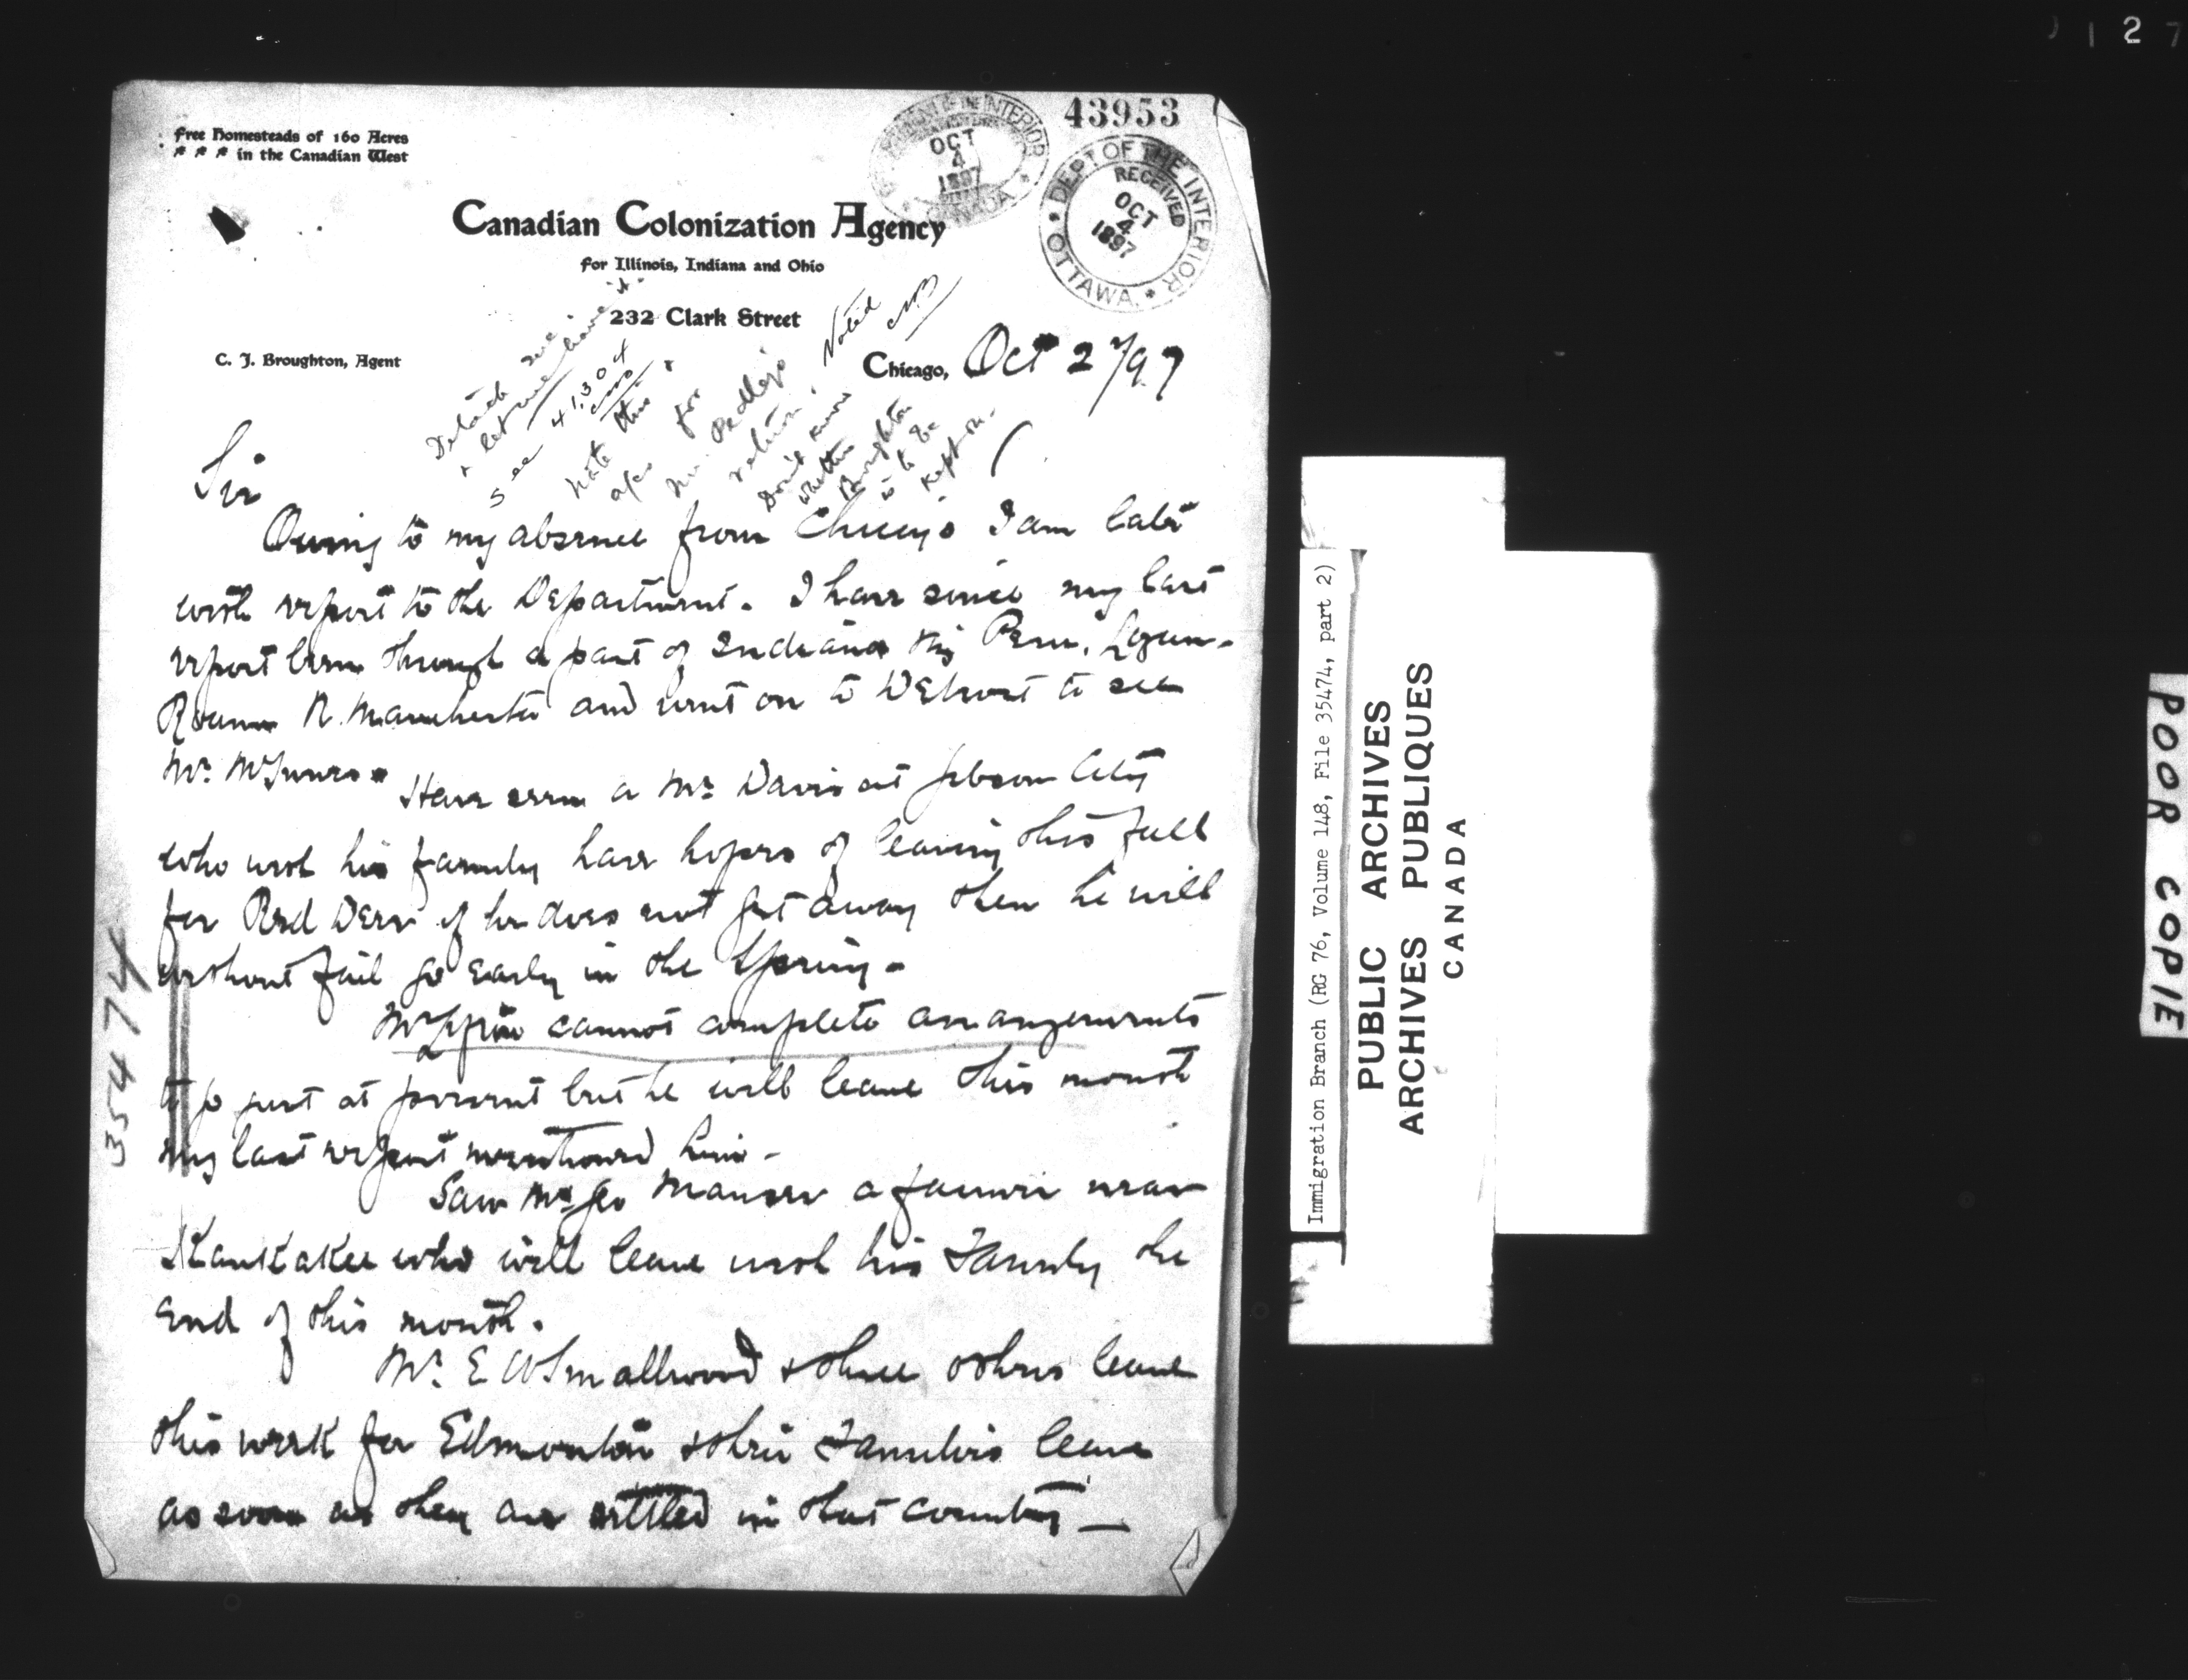 127
43953
Free Homesteads of 160 Acres
in the Canadian West
DEPARTMENT OF THE INTERIOR
OCT
4
1897
CANADA
DEPT OF THE INTERIOR
RECEIVED
OCT
4
1897
OTTAWA.
Canadian Colonization Agency
for Illinois, Indiana and Ohio
232 Clark Street
C. J. Broughton, Agent
Chicago, Oct 2/97
Detach
& let me have it.
See 41304
Note this for
Mr. Pedley's
return.
Noted
Don't know
whether
Broughton
is to be
kept on.
Sir
Owing to my absence from Chicago I am late
with report to the Department. I have since my last
report been through a part of Indiana viz Peru, Logan-
N. Manchester and went on to Detroit to see
Mr. McInnes.
Have seen a Mr Davis at Gibson City
who with his family have hopes of leaving this fall
for Red Deer if he does not get away then he will
without fail go early in the Spring -
cannot complete arrangements
to go just at present but he will leave this month
my last report mentioned him -
Saw Mr Geo Manser a farmer near
Kankakee who will leave with his Family the
end of this month.
Mr. E W Smallwood & three others leave
this week for Edmonton & their Families leave
as soon as they are settled in that country -
35474
Immigration Branch (RG 76, Volume 148, File 35474, part 2)
PUBLIC ARCHIVES
ARCHIVES PUBLIQUES
CANADA
POOR COPIE